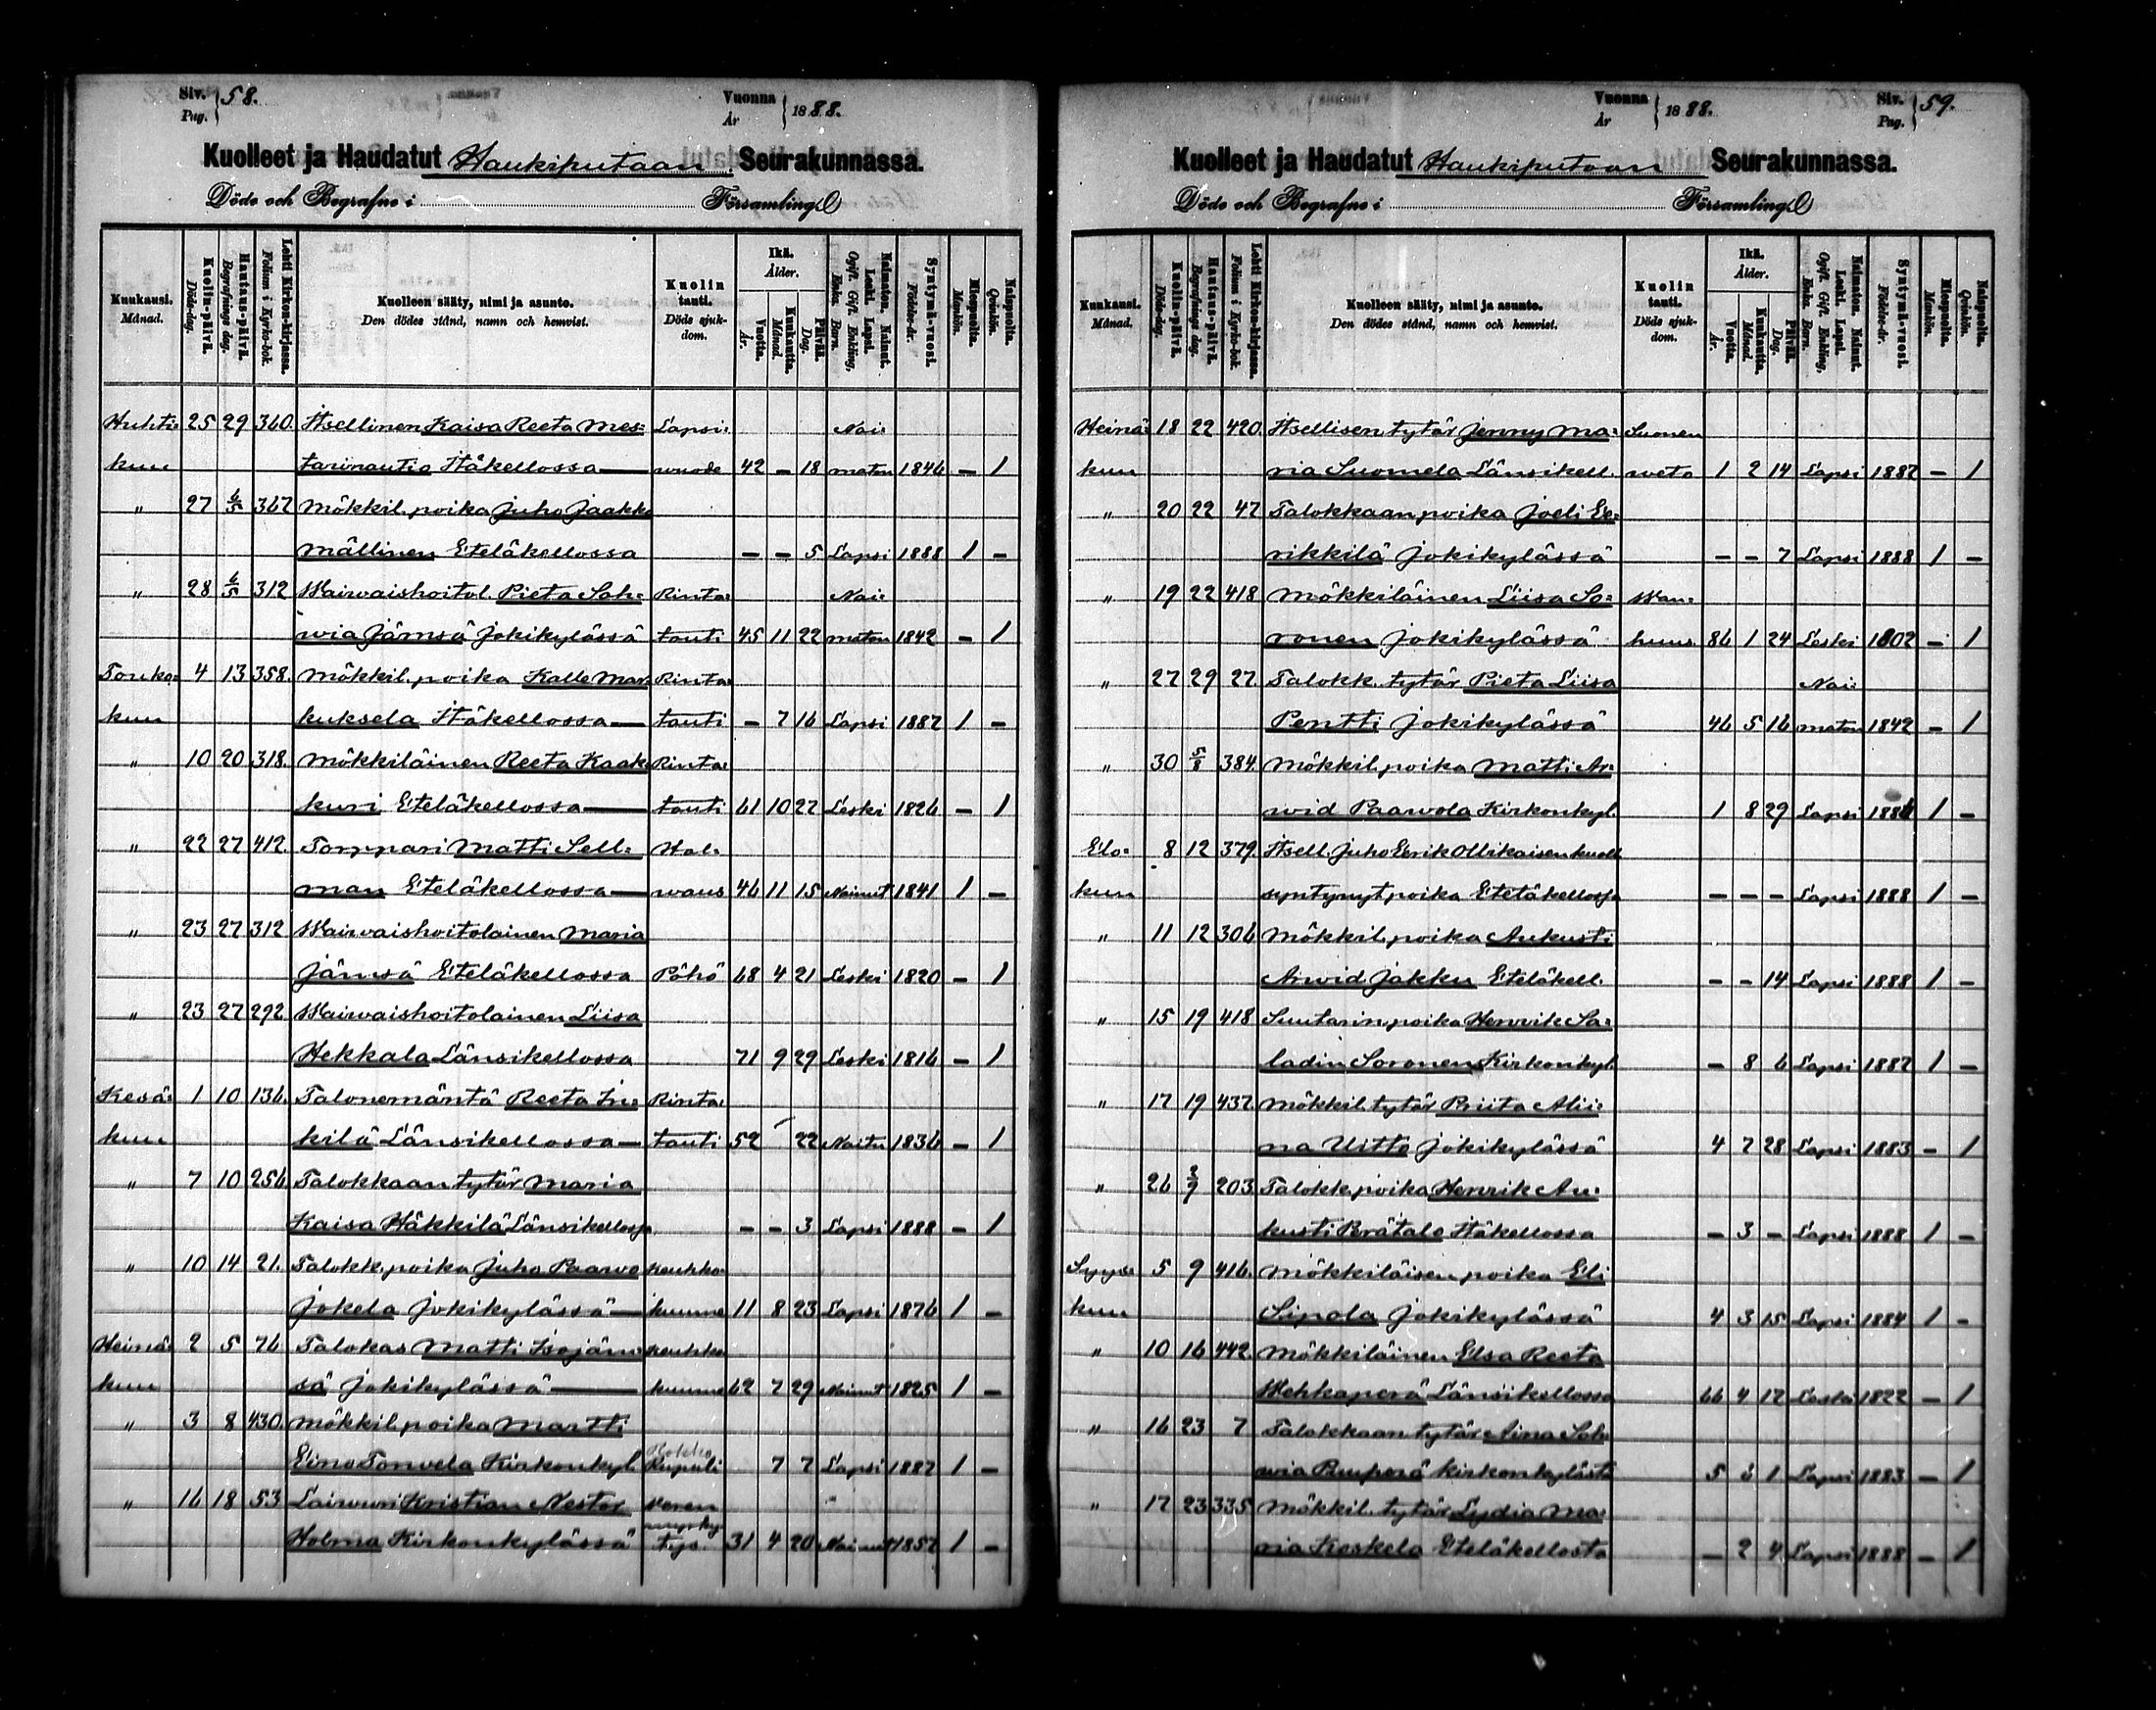 Siv. Pag. 58. Vuonna År 1888.
Kuolleet ja Haudatut Haukiputaan Seurakunnassa.
Döde och Begrafne i Församling
Kuukausi. Månad. Kuolin-päivä. Döds-dag. Hautaus-päivä. Begrafnings dag. Lehti Kirkon-kirjassa. Folium i Kyrko-bok. Kuolleen sääty, nimi ja asunto. Den dödes stånd, namn och hemvist. Kuolin tauti. Döds sjukdom. Ikä. Ålder. Vuotta. År. Kuukautta. Månad. Päivää. Dag. Naimaton. Nainut. Leski. Lapsi. Ogift. Gift. Enkling, Enka. Barn. Syntymä-vuosi. Födelse-år. Miespuolta. Mankön. Naispuolta. Qvinkön.
Huhti- 25 29 360. Itsellinen Kaisa Reeta Mes- Lapsi- Nai-
kuu tarinautio Itäkellossa vuode 42 – 18 maton 1846 – 1
" 27 6/5 367 Mökkil. poika Juho Jaakko
Mällinen Eteläkellossa – – 5 Lapsi 1888 1 –
" 28 6/5 312 Waivaishoitol. Pieta Soh- Rinta- Nai-
wia Jämsä Jokikylässä tauti 45 11 22 maton 1842 – 1
Touko- 4 13 358. Mökkil. poika Kalle Mar- Rinta-
kuu kuksela Itäkellossa tauti – 7 16 Lapsi 1887 1 –
" 10 20 318. Mökkiläinen Reeta Kaak- Rinta-
kuri Eteläkellossa tauti 61 10 22 Leski 1826 – 1
" 22 27 412. Torppari Matti Sell- Hal-
man Eteläkellossa waus 46 11 15 Nainut 1841 1 –
" 23 27 312 Waivaishoitolainen Maria
Jämsä Eteläkellossa Pöhö 68 4 21 Leski 1820 – 1
" 23 27 292 Waivaishoitolainen Liisa
Hekkala Länsikellossa 71 9 29 Leski 1816 – 1
Kesä- 1 10 136. Talonemäntä Reeta In- Rinta-
kuu kilä Länsikellossa tauti 52 22 Naitu 1836 – 1
" 7 10 256. Talokkaan tytär Maria
Kaisa Häkkilä Länsikellossa – – 3 Lapsi 1888 – 1
" 10 14 21. Talokk. poika Juho Paavo Keuhko-
Jokela Jokikylässä kuume 11 8 23 Lapsi 1876 1 –
Heinä- 2 5 76 Talokas Matti Isojäm- Keuhko
sä Jokikylässä kuume 62 7 29 Nainut 1825 1 –
" 3 8 430. Mökkil. poika Martti
Eino Tonvela Kirkonkyl. Rokko Rupuli 7 7 Lapsi 1887 1 –
" 16 18 53 Laivuri Kristian Nestor Veren
Holma Kirkonkylässä myrkytys 31 4 20 Nainut 1857 1 –
Vuonna År 1888. Siv. Pag. 59.
Kuolleet ja Haudatut Haukiputaan Seurakunnassa.
Döde och Begrafne i Församling
Kuukausi. Månad. Kuolin-päivä. Döds-dag. Hautaus-päivä. Begrafnings dag. Lehti Kirkon-kirjassa. Folium i Kyrko-bok. Kuolleen sääty, nimi ja asunto. Den dödes stånd, namn och hemvist. Kuolin tauti. Döds sjukdom. Ikä. Ålder. Vuotta. År. Kuukautta. Månad. Päivää. Dag. Naimaton. Nainut. Leski. Lapsi. Ogift. Gift. Enkling, Enka. Barn. Syntymä-vuosi. Födelse-år. Miespuolta. Mankön. Naispuolta. Qvinkön.
Heinä- 18 22 420. Itsellisen tytär Jenny Ma- Suonen
kuu ria Suomela Länsikell. weto 1 2 14 Lapsi 1887 – 1
" 20 22 47 Talokkaan poika Joeli Ee-
rikkilä Jokikylässä – – 7 Lapsi 1888 1 –
" 19 22 418 Mökkiläinen Liisa So- Wan-
ronen Jokikylässä huus 86 1 24 Leski 1802 – 1
" 27 29 27. Talokk. tytär Pieta Liisa Nai-
Pentti Jokikylässä 46 5 16 maton 1842 – 1
" 30 5/8 384. Mökkil. poika Matti Ar-
wid Paavola Kirkonkyl. 1 8 29 Lapsi 1886 1 –
Elo- 8 12 379. Itsell. Juho Eerik Ollikaisen kuoll.
kuu syntynyt poika Eteläkellossa – – – Lapsi 1888 1 –
" 11 12 306 Mökkil. poika Aukusti
Arwid Jakku Eteläkell. – – 14 Lapsi 1888 1 –
" 15 19 418 Suutarin poika Henrik Sa-
ladin Soronen Kirkonkyl. – 8 6 Lapsi 1887 1 –
" 17 19 437. Mökkil. tytär Priita Alii-
na Uitto Jokikylässä 4 7 28 Lapsi 1883 – 1
" 26 2/9 203 Talokk. poika Henrik Au-
kusti Perätalo Itäkellossa – 3 – Lapsi 1888 1 –
Syys- 5 9 416. Mökkiläisen poika Eli
kuu Sipola Jokikylässä 4 3 15 Lapsi 1884 1 –
" 10 16 442. Mökkiläinen Elsa Reeta
Wehkaperä Länsikellossa 66 4 17 Leski 1822 – 1
" 16 23 7 Talokkaan tytär Aina Soh-
wia Ruuperä Kirkonkylästä 5 3 1 Lapsi 1883 – 1
" 17 23 335 Mökkil. tytär Lydia Ma-
ria Keskela Eteläkellosta – 2 4 Lapsi 1888 – 1